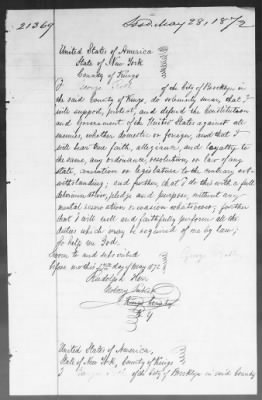 21369
May 28, 1872
United States of America
State of New York
County of Kings
I George of the City of Brooklyn in
the said County of Kings, do solemnly swear, that I
will support, protect, and defend the Constitution
and Government of the United States against all
enemies, whether domestic or foreign, and that I
will bear true faith, allegiance, and loyalty to
the same, any ordinance, resolution, or law of any
state, convention or legislature to the contrary not-
withstanding; and further, that I do this with a full
determination, pledge and purpose, without any
mental reservation or evasion whatsoever; further
that I will well and faithfully perform all the
duties which may be required of me by law;
So help me God.
Sworn to and subscribed
before me this 27th day of May 1872
George
Rudolph
Notary Public
Kings County
N Y
United States of America,
State of New York, County of Kings
I George of the City of Brooklyn in said County